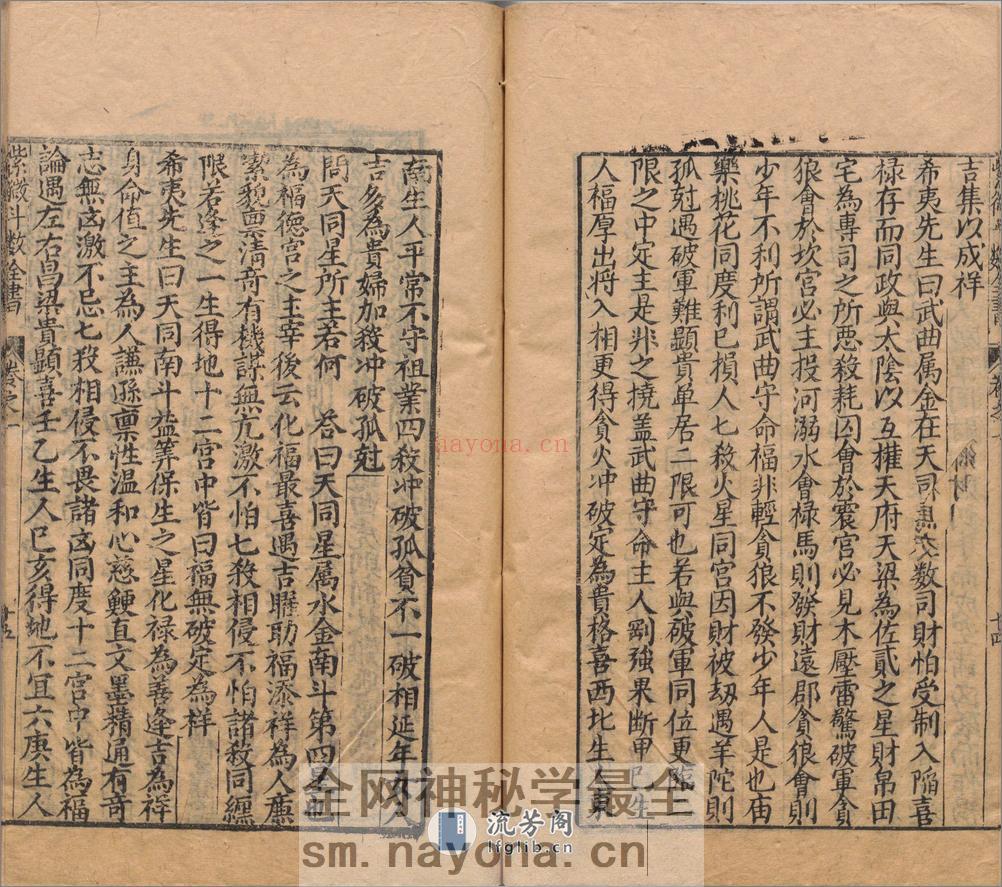 吉集以成祥
希夷先生曰武曲属金在天司壽在数司財怕受制入陥喜
禄存而同政與太陰以互權天府天梁為佐貳之星財帛田
宅為專司之所悪殺耗囚會於震宮必見木壓雷驚破軍貪
狼會於坎宮必主投河溺水會禄馬則發財遠郡貪狼會則
少年不利所謂武曲守命福非輕貪狼不發少年人是也庙
樂桃花同度利已損人七殺火星同宮因財被刼遇羊陀則
孤尅遇破軍難顯貴单居二限可也若與破軍同位更臨二
限之中定主是非之撓盖武曲守命主人剛强果断甲巳生
人福厚出將入相更得貪火冲破定為貴格喜西北生人東
南生人平常不守祖業四殺冲破孤貧不一破相延年女人
吉多為貴婦加殺冲破孤尅
問天同星所主若何 荅曰天同星属水金南斗第四星也
為福德宮之主宰後云化福最喜遇吉曜助福添祥為人廉
潔貌禀清奇有機謀無亢激不怕七殺相侵不怕諸殺同纏
限若逢之一生得地十二宮中皆曰福無破定為祥
希夷先生曰天同南斗益筭保生之星化禄為善逢吉為祥
身命值之主為人謙遜禀性温和心慈鯁直文墨精通有奇
志無凶激不忌七殺相侵不畏諸凶同度十二宮中皆為福
論遇左右昌梁貴顯喜壬乙生人巳亥得地不宜六庚生人
紫微斗数全書 卷之一 十五
十四
hayona.ch
全网神秘学最全
sm.nayona.cn
流芳阁
lfglib.cn